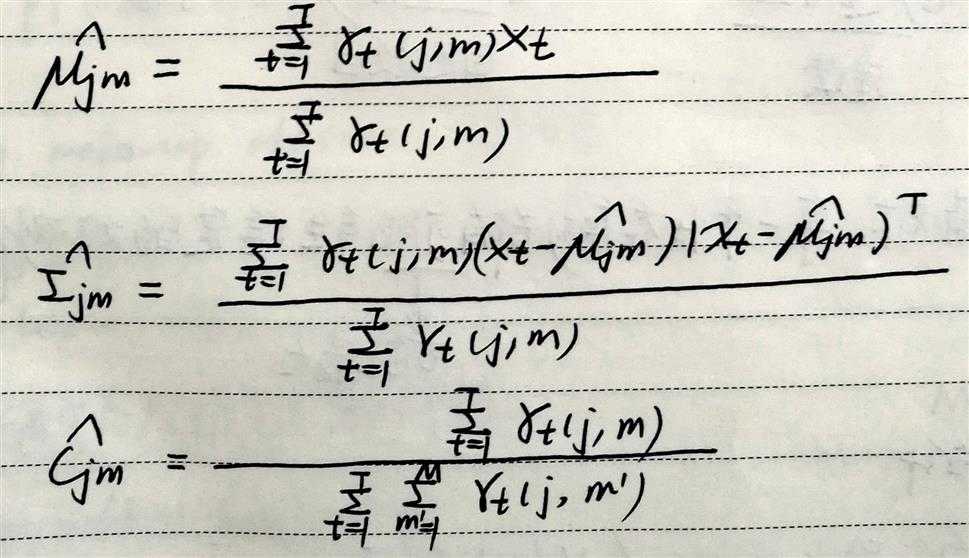 \hat{\mu_{jm}} = \frac{\sum_{t=1}^{T} \gamma_t(j,m) x_t}{\sum_{t=1}^{T} \gamma_t(j,m)}
\hat{\Sigma_{jm}} = \frac{\sum_{t=1}^{T} \gamma_t(j,m)(x_t - \hat{\mu_{jm}})(x_t - \hat{\mu_{jm}})^T}{\sum_{t=1}^{T} \gamma_t(j,m)}
\hat{C_{jm}} = \frac{\sum_{t=1}^{T} \gamma_t(j,m)}{\sum_{t=1}^{T} \sum_{m'=1}^{M} \gamma_t(j,m')}